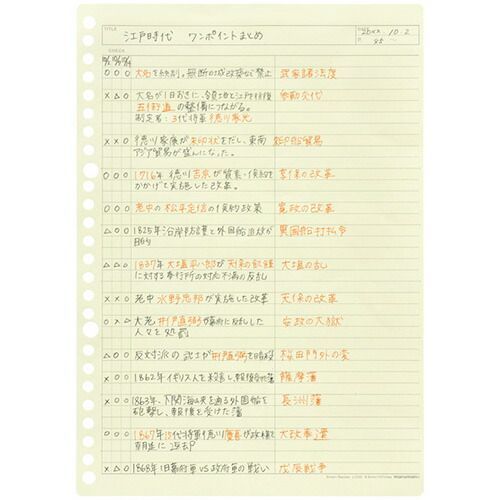 TITLE
江戸時代 ワンポイントまとめ
DATE
10.2
P.
95
CHECK
○○○ 大名を統制。無断の城改築など禁止 武家諸法度
×△○ 大名が1日おきに、領地と江戸を往復 参勤交代
五街道の整備につながる。
制定者:3代将軍 徳川家光
××○ 徳川家康が朱印状をだし、東南 朱印船貿易
アジア貿易が盛んになった。
○○○ 1716年 徳川吉宗が質素・倹約を 享保の改革
かかげて実施した改革。
○○○ 老中の松平定信の倹約政策 寛政の改革
△○○ 1825年沿岸防護と外国船追放が 異国船打払令
目的
△△○ 1837年 大塩平八郎が天保の飢饉 大塩の乱
に対する奉行所の対応不満の反乱
××○ 老中 水野忠邦が実施した改革 天保の改革
○×△ 大老 井伊直弼が幕府に反対した 安政の大獄
人々を処罰
△○○ 反対派の武士が井伊直弼を暗殺 桜田門外の変
×○○ 1862年イギリス人を殺害し、報復受けた藩 薩摩藩
×○○ 1863年、下関海峡を通る外国船を 長州藩
砲撃し、報復を受けた藩
○○○ 1867年15代将軍徳川慶喜が政権を 大政奉還
朝廷に返す
×△○ 1868年旧幕府軍VS政府軍の戦い 戊辰戦争